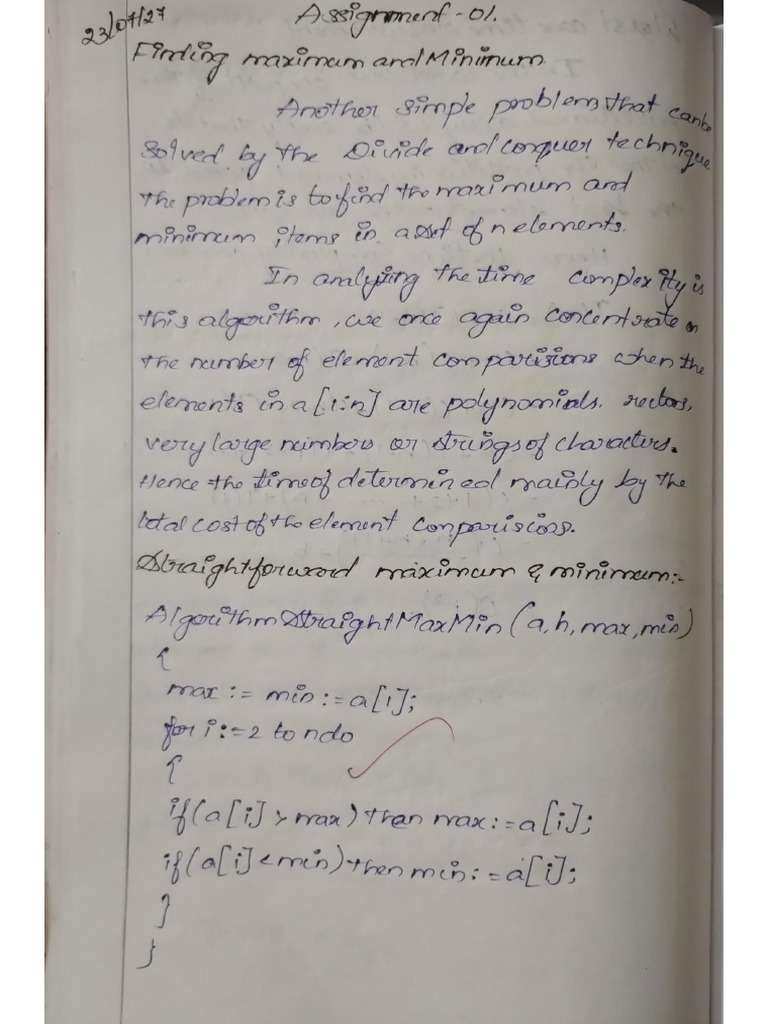 23/07/27
Assignment-01.
Finding maximum and Minimum
Another simple problems that canbe
solved by the Divide and conquer technique
the problem is to find the maximum and
minimum items in a set of n elements.
In analyzing the time complexity is
this algorithm, we once again concentrate on
the number of element comparisions when the
elements in a[1:n] are polynomials. vectors,
very large numbers or strings of characters.
Hence the time of determined mainly by the
total cost of the element comparisions.
Straightforward maximum & minimum:-
Algorithm StraightMaxMin(a,h,max,min)
{
max := min := a[1];
for i:=2 to n do
{
if(a[i] > max) then max:=a[i];
if(a[i] < min) then min:=a[i];
}
}